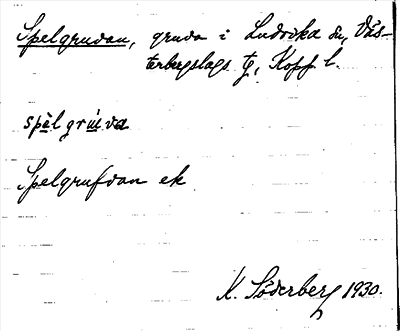 Spelgruvan, gruva i Ludvika sn, Väs-
terbergslags tg, Kopp. l.
spel gruva
Spelgrufvan ek
K. Söderberg 1930.